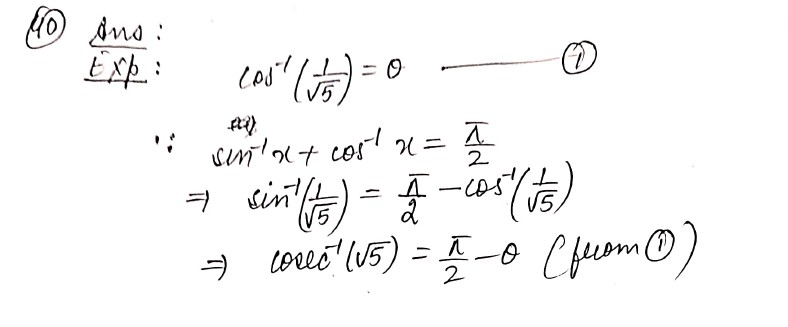 40 Ans :
Exp : cos⁻¹(1/√5) = θ ——— ①
∵ sin⁻¹x + cos⁻¹ x = π/2
⇒ sin⁻¹(1/√5) = π/2 − cos⁻¹(1/√5)
⇒ cosec⁻¹(√5) = π/2 − θ (from ①)